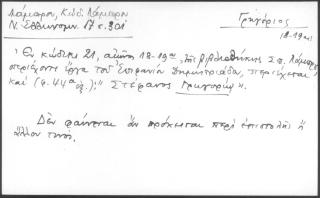 Λάμπρου, Κώδ. Λάμπρου
Ν. Ἑλληνομν. 17 σ. 301
Γρηγόριος
18-19 αι
Ὁ κώδικας 21, αἰώνος 18-19ου, τῆς βιβλιοθήκης Σπ. Λάμπρου
περιέχοντας ἔργα τοῦ Δημητριάδα, περιέχεται
καὶ (φ. 44α
"Στέφανος Γρηγορίῳ".
Δὲν φαίνεται ἂν πρόκειται περὶ ἐπιστολῆς ἢ
ἄλλου τινος.